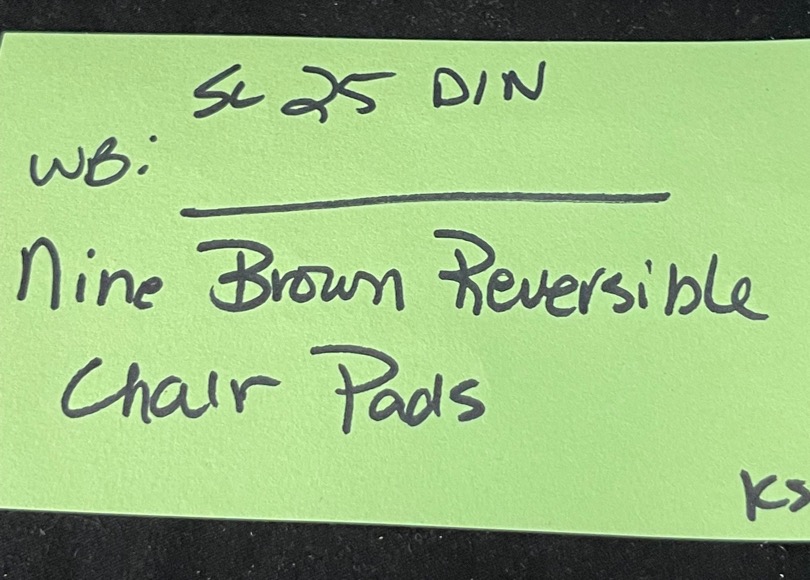 SC 25 DIN
WB:
Nine Brown Reversible
Chair Pads
KS